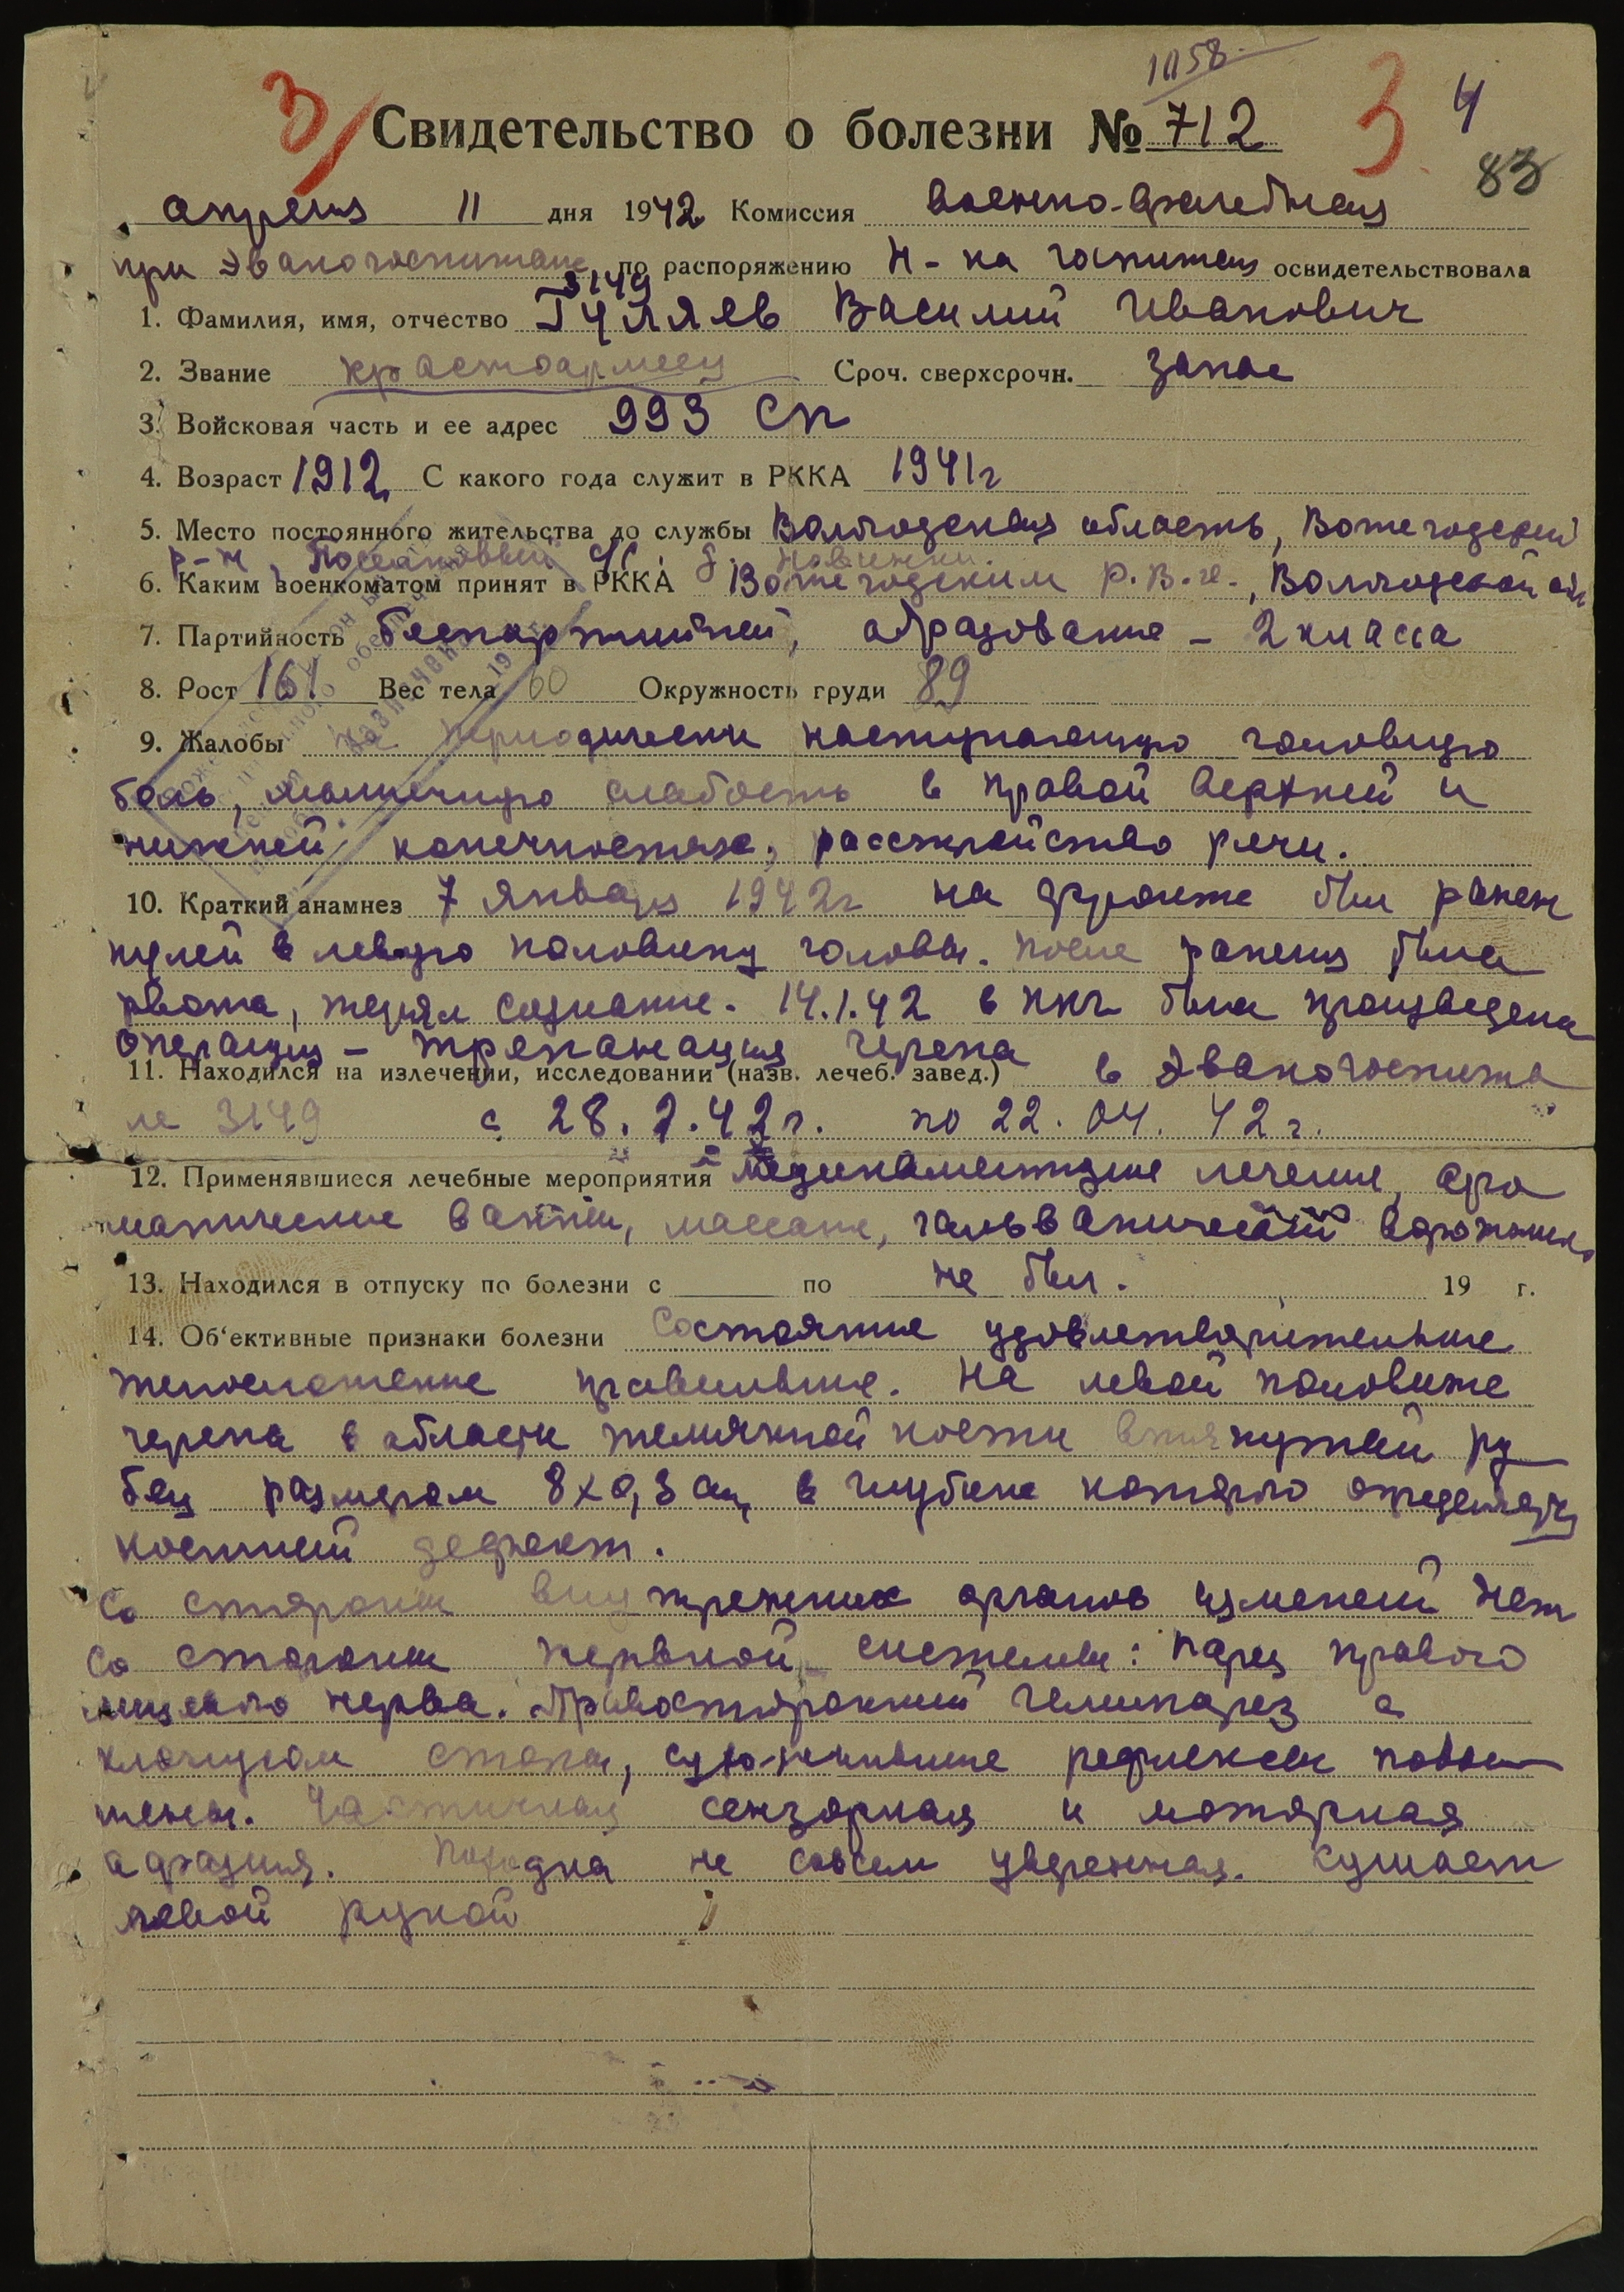 1158
3 Свидетельство о болезни № 712 3 4
83
апреля 11 дня 1942 Комиссия военно-врачебная
при Эвакогоспитале 3149, по распоряжению Н-ка госпиталя освидетельствовала
1. Фамилия, имя, отчество Гуляев Василий Иванович
2. Звание красноармеец Сроч. сверхсрочн. запас
3. Войсковая часть и ее адрес 993 сп
4. Возраст 1912 С какого года служит в РККА 1941г
5. Место постоянного жительства до службы Вологодская область, Вожегодский
р-н, с/с. д.
6. Каким военкоматом принят в РККА Вожегодским Р.В.К., Вологодской обл
7. Партийность беспартийный, образование - 2 класса
8. Рост 161 Вес тела 60 Окружность груди 89
9. Жалобы на периодически наступающую головную
боль, мышечную слабость в правой верхней и
нижней конечностях, расстройство речи.
10. Краткий анамнез 7 января 1942г на фронте был ранен
пулей в левую половину головы. После ранения была
рвота, терял сознание. 14.1.42 в ппг была произведена
операция - трепанация черепа
11. Находился на излечении, исследовании (назв. лечеб. завед.) в Эвакогоспита
ле 3149 с 28.2.42г. по 22.04.42г.
12. Применявшиеся лечебные мероприятия медикаментозное лечение,
ванны, массаж,
13. Находился в отпуску по болезни с по не был. 19 г.
14. Об‘ективные признаки болезни Состояние удовлетворительное
телосложение правильное. На левой половине
черепа в области темянной кости втянутый ру
бец размером 8х0,3 см, в глубине которого определяется
костный дефект.
Со стороны внутренних органов изменений нет
Со стороны нервной системы: парез правого
лицевого нерва. Правосторонний гемипарез с
клонусом стопы, сухожильные рефлексы повы
шены. Частичная сензорная и моторная
афазия. Походка не совсем уверенная. Кушает
левой рукой